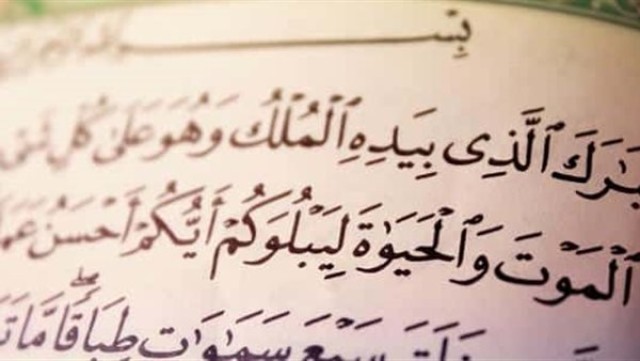 بِسْـــــ
بَٰرَكَ ٱلَّذِى بِيَدِهِ ٱلْمُلْكُ وَهُوَ عَلَىٰ كُلِّ شَىْ
ٱلْمَوْتَ وَٱلْحَيَوٰةَ لِيَبْلُوَكُمْ أَيُّكُمْ أَحْسَنُ عَمَلًا
خَلَقَ سَبْعَ سَمَٰوَٰتٍ طِبَاقًا ۖ مَّا تَ